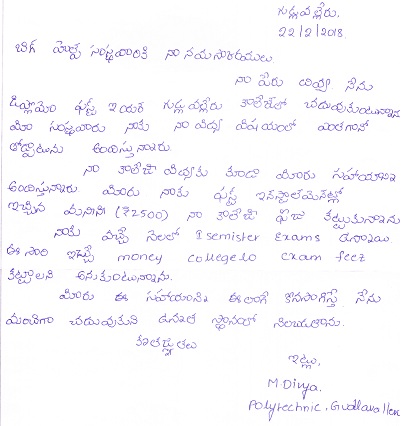 గుడ్లవల్లేరు.
22/2/2018
బిగ్ హెల్ప్ సంస్థవారికి నా నమస్కారములు.
నా పేరు దివ్య నేను
డిప్లొమొ ఫస్ట్ ఇయర్ గుడ్లవల్లేరు కాలేజీలో చదువుకుంటున్నాను
మీ సంస్థవారు నాకు నా విద్య విషయంలో ఎంతగానో
తోడ్పాటును అందిస్తున్నారు.
నా కాలేజి విద్యకు కూడా మీరు సహాయాన్ని
అందిస్తున్నారు మీరు నాకు ఫస్ట్ ఇన్‌స్టాల్‌మెంట్లో
ఇచ్చిన మనీని (₹2500) నా కాలేజీ ఫీజు కట్టుకున్నాను
నాకు వచ్చే నెలలో I semister Exams ఉన్నాయి
ఈ సారి ఇచ్చే money collegelo exam feez
కట్టాలని అనుకుంటున్నాను.
మీరు ఈ సహాయాన్ని ఈలాగే కొనసాగిస్తే నేను
మంచిగా చదువుకుని ఉన్నత స్థానంలో నిలబడతాను.
కృతజ్ఞతలు
ఇట్లు,
M.Divya.
Polytechnic, Gudlavalleru